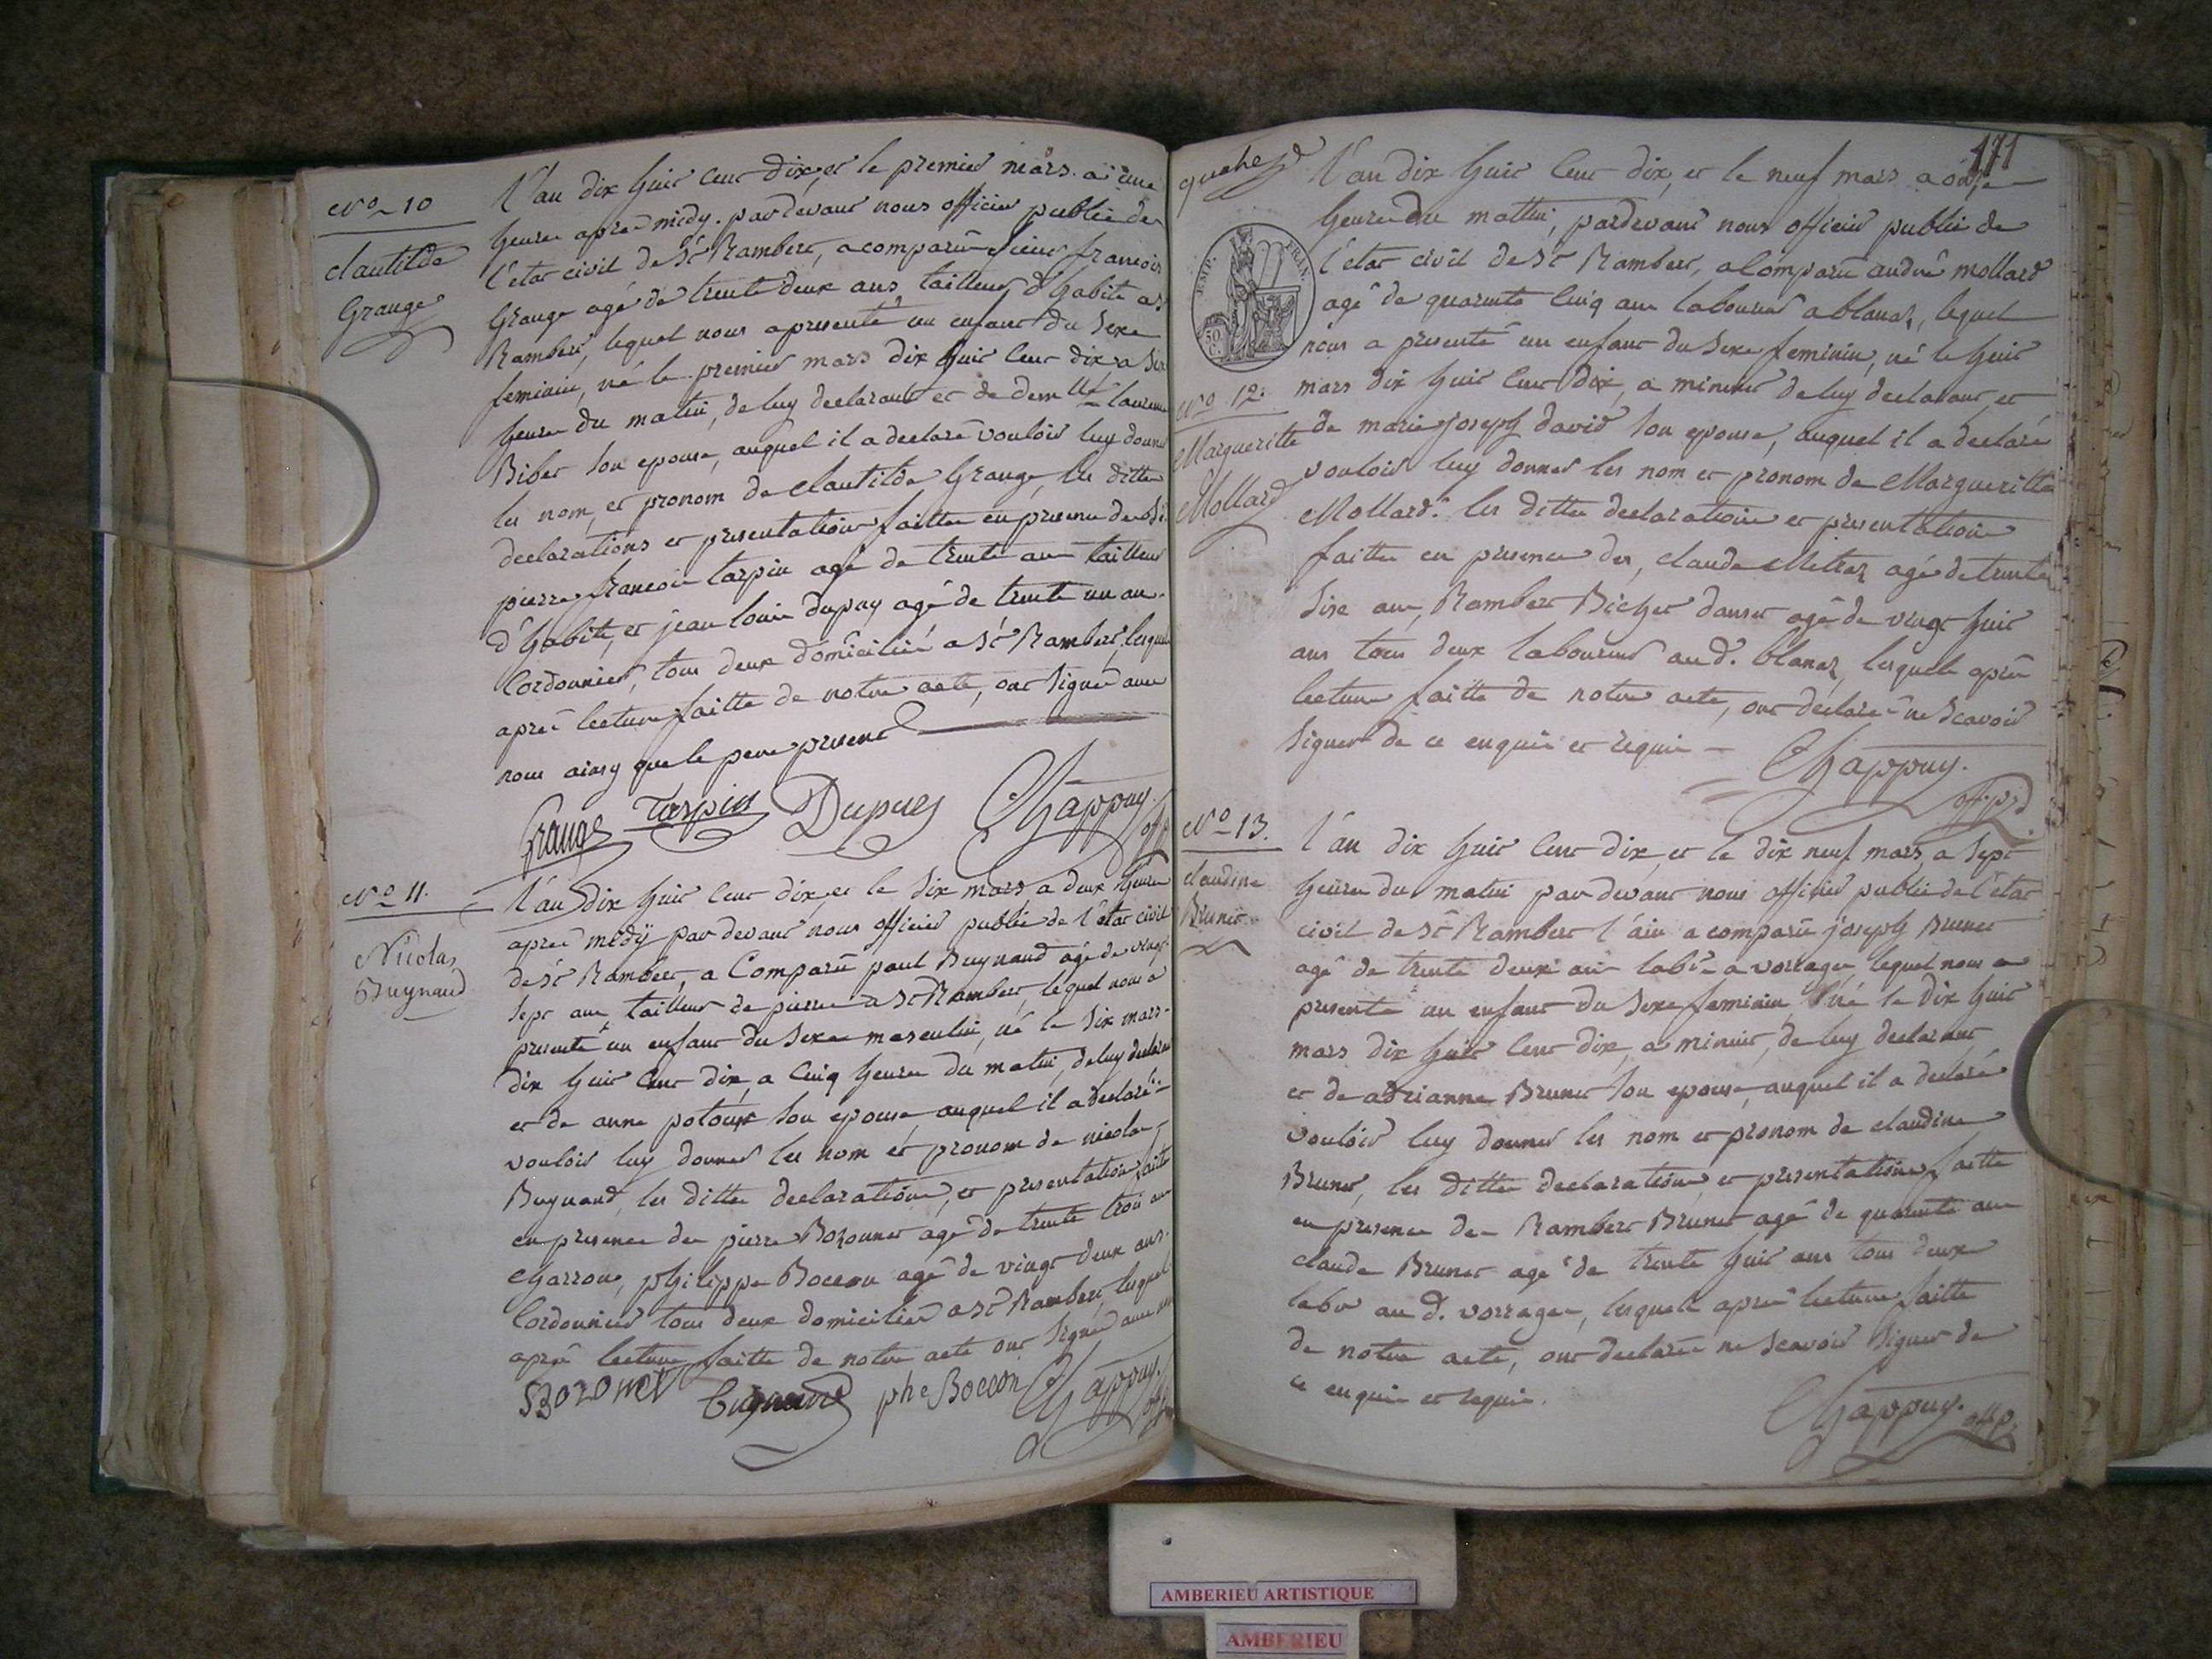 No 10
clautilde
Grange
L'an dix huit cent dix, et le premier mars a une
heure apres midy. pardevant nous officier public de
l'etat civil de St Rambert, a comparu sieur francois
Grange agé de trente deux ans tailleur d'habits a St
Rambert, lequel nous a presenté un enfant du sexe
feminin, né le premier mars dix huit cent dix a six
heures du matin, de luy declarant et de demlle laurence
Bibet son epouse, auquel il a declaré vouloir luy donner
les nom, et pronom de clautilde Grange, les dittes
declarations et presentation faittes en presence des Sr
pierre francois tarpin agé de trente ans tailleur
d'habits, et jean louis dupuy agé de trente un ans
Cordonnier, tous deux domiciliés a St Rambert, lesquels
après lecture faitte de notre acte, ont signé avec
nous ainsy que le pere present
Grange Tarpin Dupuy Chappuy. off p
No 11.
Nicolas
Buynand
L'an dix huit cent dix, et le six mars a deux heures
après midÿ par devant nous officier public de l'etat civil
de St Rambert, a Comparu paul Buynand agé de vingt
sept ans tailleur de pierre a St Rambert, lequel nous a
presenté un enfant du sexe masculin, né le six mars
dix huit cent dix, a cinq heures du matin, de luy declarant
et de anne potoux son epouse, auquel il a declaré
vouloir luy donner les nom et pronom de nicolas
Buynand, les dittes declarations, et presentation faitte
en presence de pierre Bozonnet agé de trente trois ans
charron, philippe Boccon agé de vingt deux ans.
Cordonnier tous deux domiciliés a St Rambert, lesquels
après lecture faitte de notre acte ont signé avec nous
BOZONET Buynand phe Boccon Chappuy. off
171
EMP. FRAN.
50 C.
L'an dix huit cent dix, et le neuf mars a onze
heures du mattin, pardevant nous officier public de
l'etat civil de St Rambert, a Comparu andré mollard
agé de quarente cinq ans laboureur a blanaz, lequel
nous a presenté un enfant du sexe feminin, né le huit
mars dix huit cent dix, a minuit de luy declarant, et
No 12.
Margueritte
Mollard
de marie joseph david son epouse, auquel il a declaré
vouloir luy donner les nom et pronom de Margueritte
Mollard. les dittes declaration et presentation
faittes en presence des, claude Mettaz agé de trente
six ans, Rambert Bichet danset agé de vingt huit
ans tous deux laboureur aud. blanaz, lesquels après
lecture faitte de notre acte, ont declaré ne scavoir
signer de ce enquis et requis
Chappuy.
off. p.
No 13.
claudine
Brunet
L'an dix huit cent dix, et le dix neuf mars, a sept
heures du matin par devant nous officier public de l'etat
civil de St Rambert l'ain a comparu joseph Brunet
agé de trente deux ans labr a vorrage, lequel nous a
presenté un enfant du sexe feminin, né le dix huit
mars dix huit cent dix, a minuit, de luy declarant
et de adrianne Brunet son epouse, auquel il a declaré
vouloir luy donner les nom et pronom de claudine
Brunet, les dittes declarations et presentations faitte
en presence de Rambert Brunet agé de quarente ans
claude Brunet agé de trente huit ans tous deux
labr au d. vorrage, lesquels après lecture faitte
de notre acte, ont declaré ne scavoir signer de
ce enquis et requis.
Chappuy. off p.
AMBERIEU ARTISTIQUE
AMBERIEU